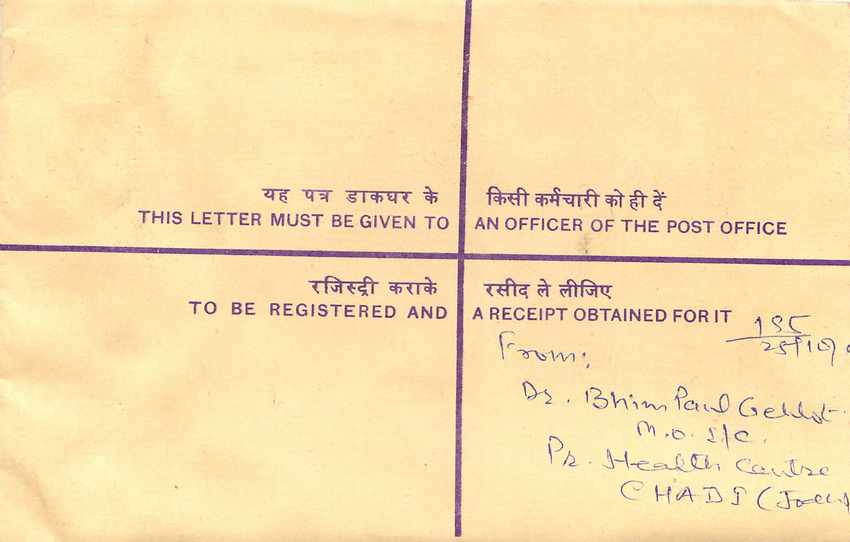 यह पत्र डाकघर के किसी कर्मचारी को ही दें
THIS LETTER MUST BE GIVEN TO AN OFFICER OF THE POST OFFICE
रजिस्ट्री कराके रसीद ले लीजिए
TO BE REGISTERED AND A RECEIPT OBTAINED FOR IT
From:
Dr. Bhim Paul Gehlot
M.O. I/C.
Pr. Health Centre
CHADI